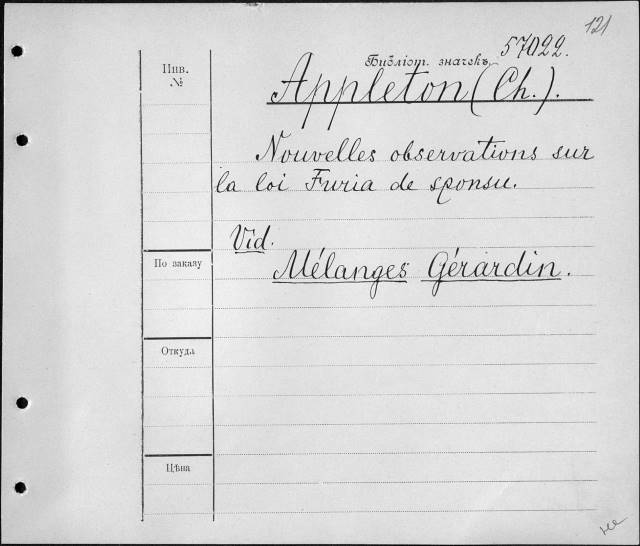 121
57022.
Инв.
№
Библіот. значекъ
Appleton (Ch.).
Nouvelles observations sur
la loi Furia de sponsu.
Vid.
Mélanges Gérardin.
По заказу
Откуда
Цѣна